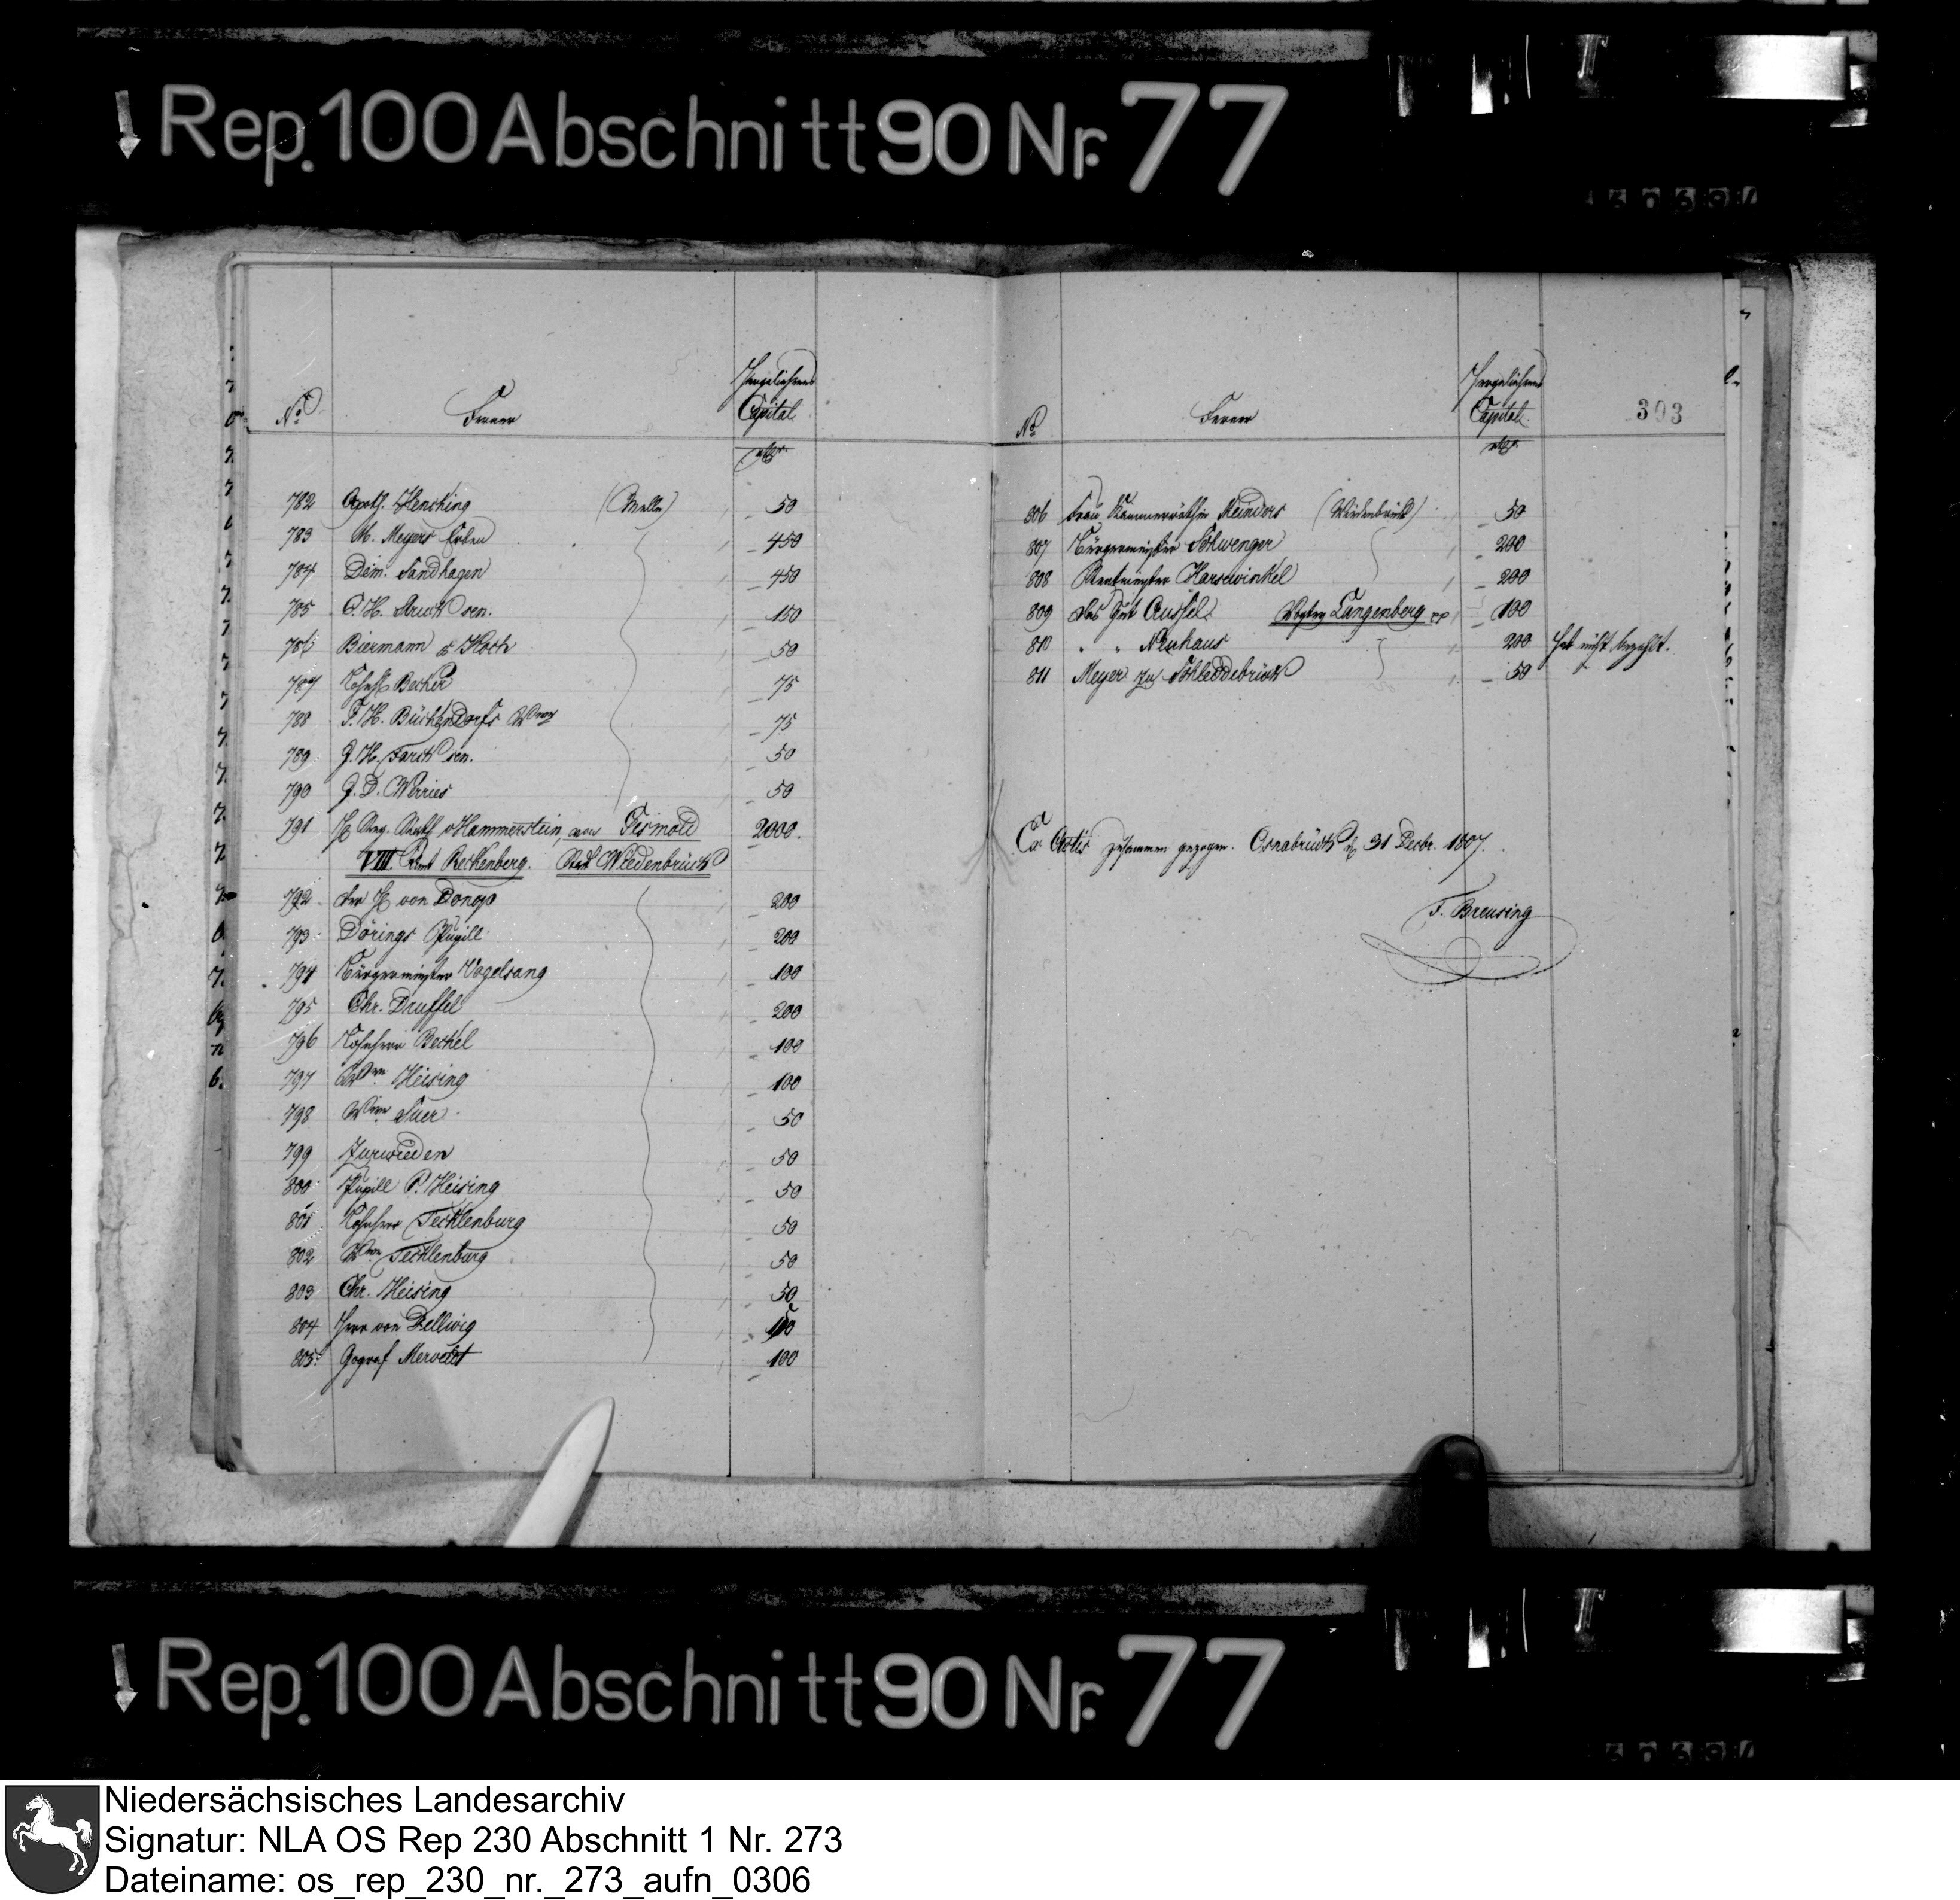 Rep. 100 Abschnitt 90 Nr. 77
303
No Ferner Capital
782 Apoth. Hensking (Melle) 50
783 M. Meyers Erben 450
784 Dem. Sandhagen 450
785 C. H. Struck sen. 150
786 Biermann & Koch 50
787 Becker 75
788 F. H. Bückendorfs Wwe 75
789 G. H. Farck sen. 50
790 G. D. Werries 50
791 H. Reg. Rath v Hammerstein, von Gesmold 2000.
VIII Amt Reckenberg. Stadt Wiedenbrück
792 der H von Donop 200
793 Dörings Pupill 200
794 Bürgermeister Vogelsang 100
795 Chr. Druffel 200
796 Lohnherr Bechel 100
797 Wwe Heising 100
798 Wwe Suer 50
799 Zurwieden 50
800 Pupill P. Heising 50
801 Lohnherr Tecklenburg 50
802 Wwe Tecklenburg 50
803 Chr. Heising 50
804 Herr von Dellwig
805 Gograf Merveldt 100
No Ferner Capital
806 Frau Kammerräthin Meinders (Wiedenbrück) 50
807 Bürgermeister Schwenger 200
808 Rentmeister Harsewinkel 200
809 das Gut Aussel Vogtey Langenberg 100
810 " " Neuhaus 200 hat nicht bezahlt.
811 Meyer zu Schleddebrück 50
Ex Actis zusammen gezogen. Osnabrück d 31 Decbr. 1807.
F. Breusing
Rep. 100 Abschnitt 90 Nr. 77
Niedersächsisches Landesarchiv
Signatur: NLA OS Rep 230 Abschnitt 1 Nr. 273
Dateiname: os_rep_230_nr._273_aufn_0306